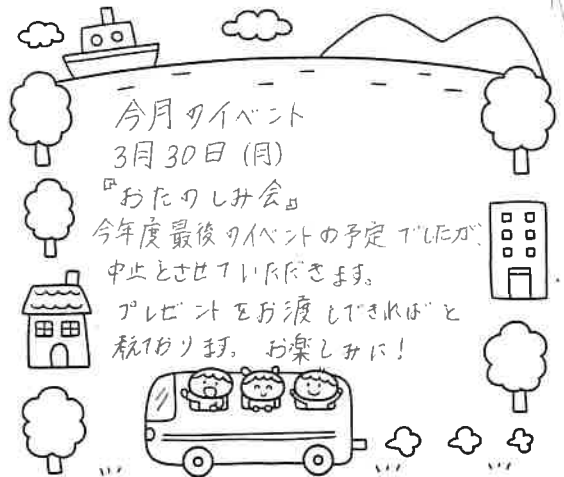 今月のイベント
3月30日(月)
『おたのしみ会』
今年度最後のイベントの予定でしたが、
中止とさせていただきます。
プレゼントをお渡しできればと
考ております。お楽しみに!